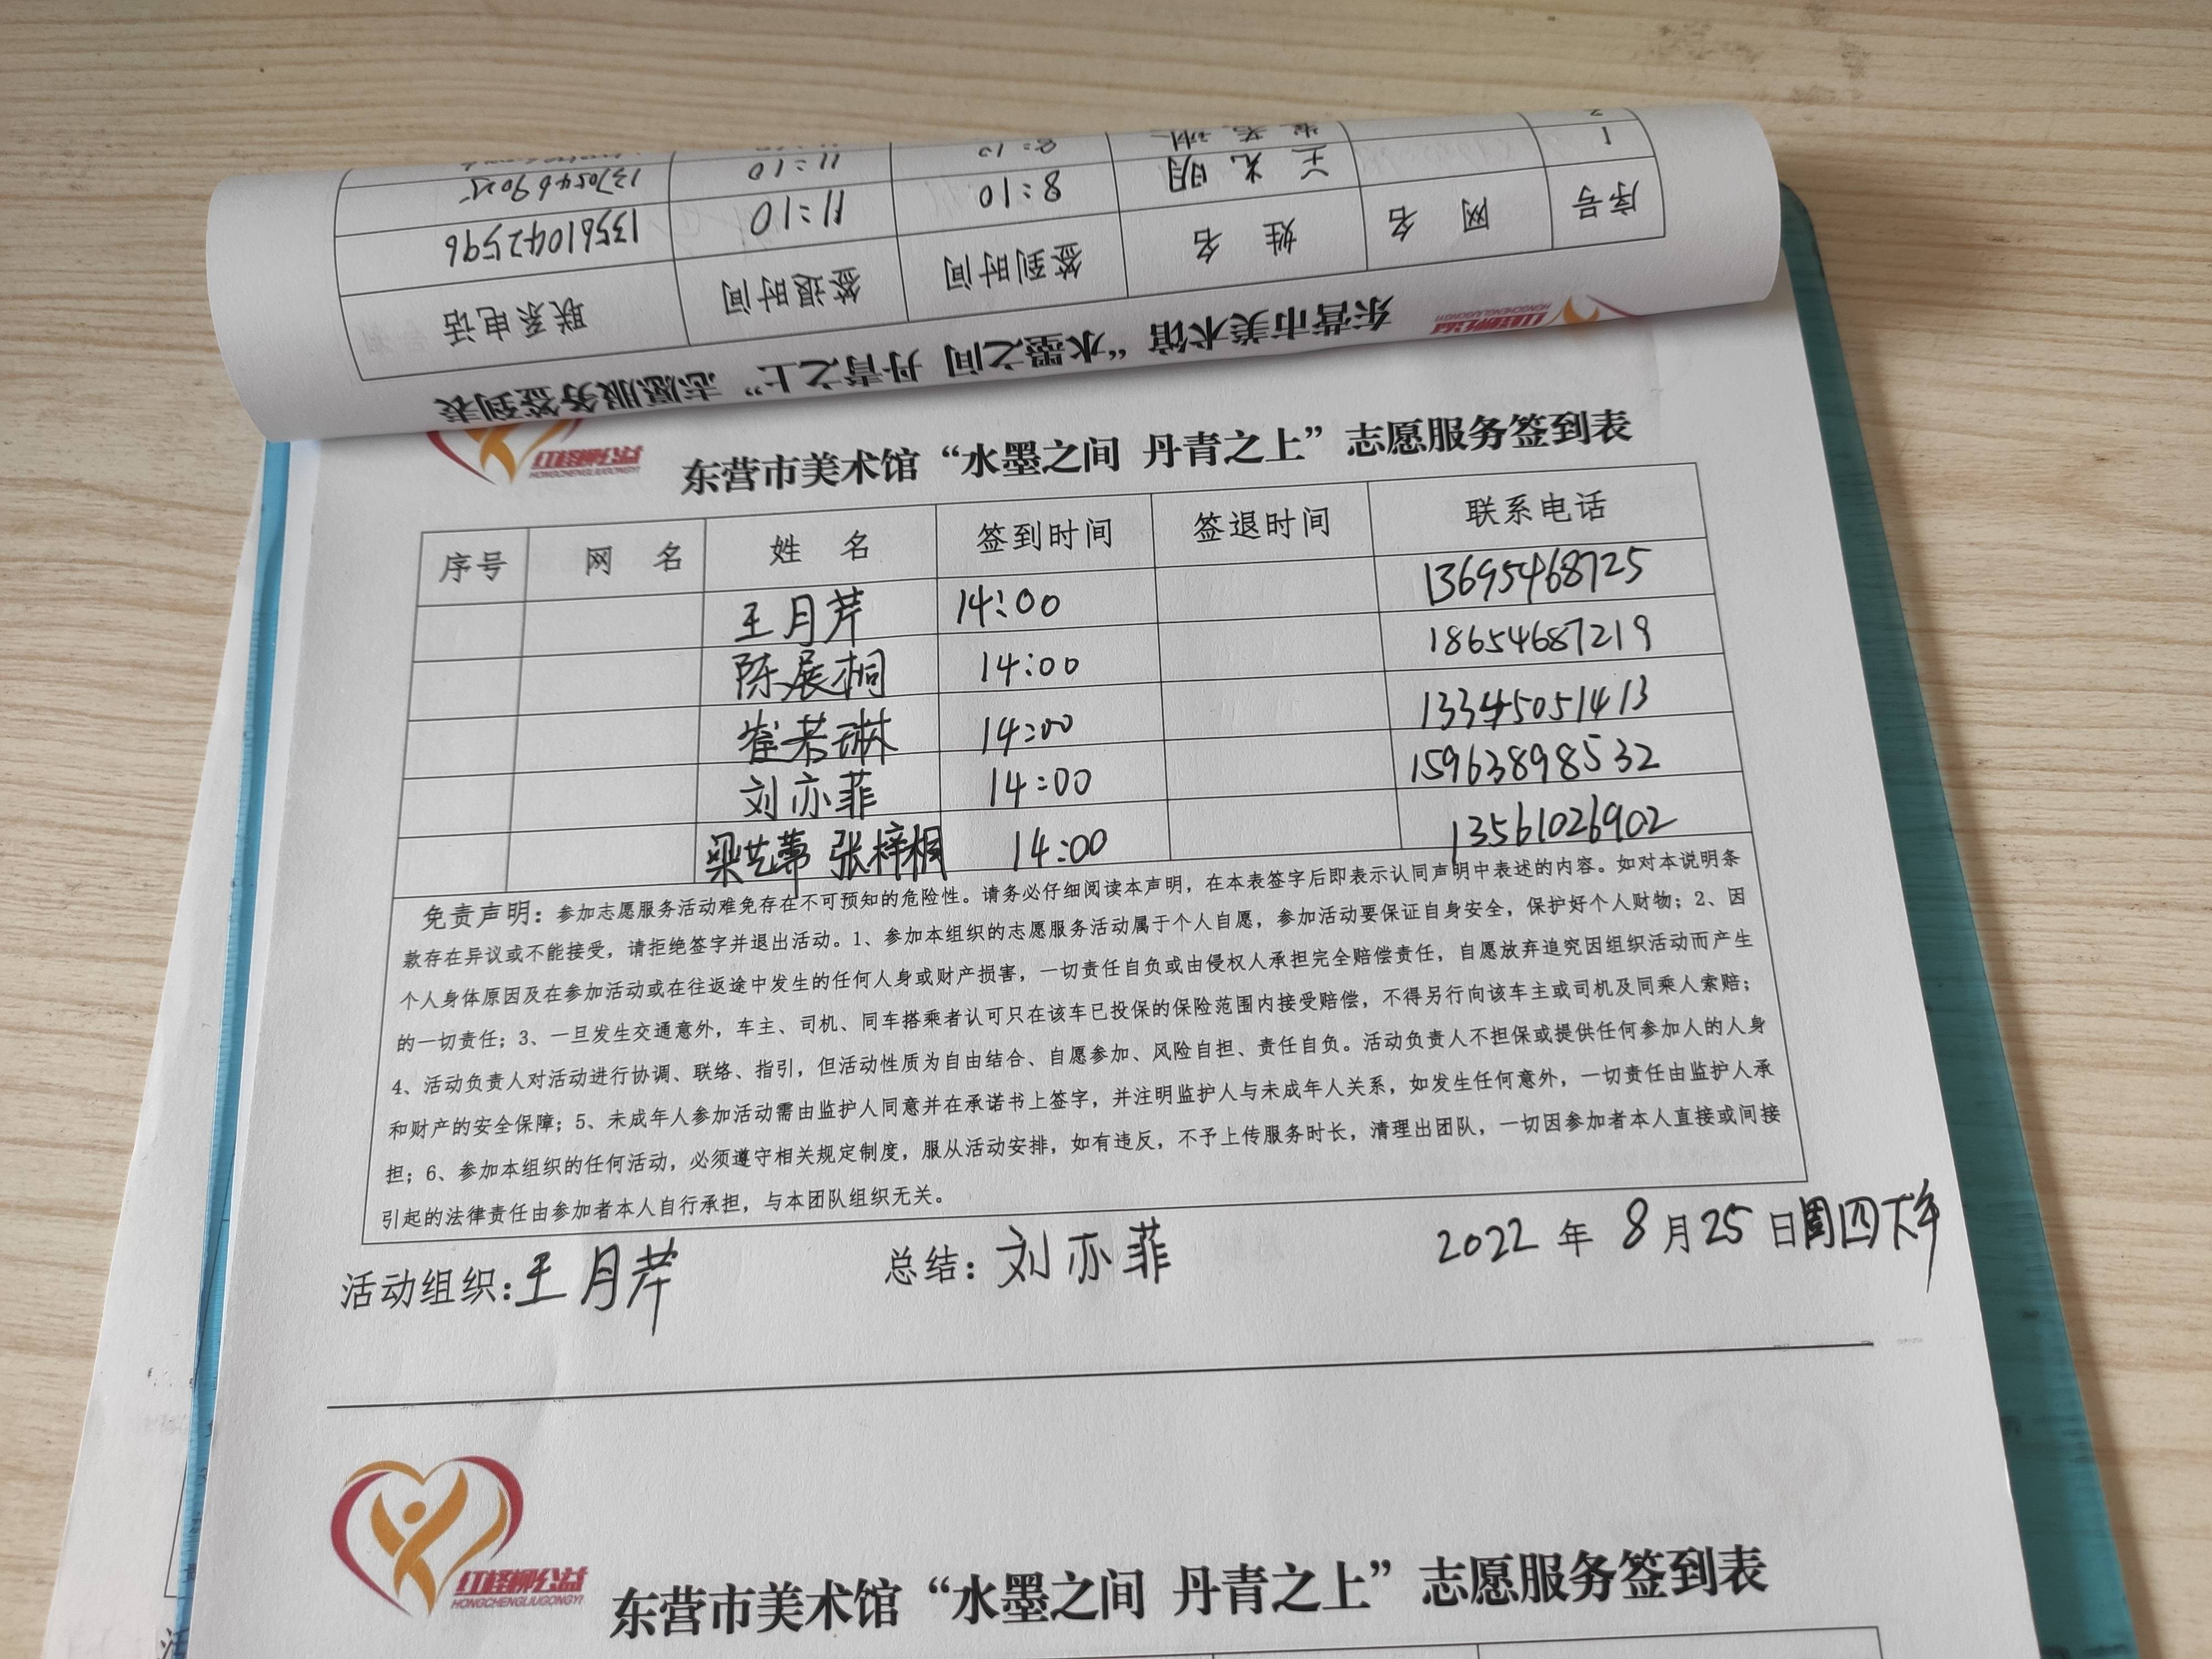 序号 网 名 姓 名 签到时间 签退时间 联系电话
1 王光明 8:10 11:10 13561042596
11:10 13705469025
东营市美术馆“水墨之间 丹青之上”志愿服务签到表
红柽柳公益
HONGCHENGLIUGONGYI
东营市美术馆“水墨之间 丹青之上”志愿服务签到表
序号 网 名 姓 名 签到时间 签退时间 联系电话
王月芹 14:00 13695468725
陈展桐 14:00 18654687219
崔若琳 14:00 13345051413
刘亦菲 14:00 15963898532
梁艺蓠 张梓桐 14:00 13561026902
免责声明：参加志愿服务活动难免存在不可预知的危险性。请务必仔细阅读本声明，在本表签字后即表示认同声明中表述的内容。如对本说明条
款存在异议或不能接受，请拒绝签字并退出活动。1、参加本组织的志愿服务活动属于个人自愿，参加活动要保证自身安全，保护好个人财物；2、因
个人身体原因及在参加活动或在往返途中发生的任何人身或财产损害，一切责任自负或由侵权人承担完全赔偿责任，自愿放弃追究因组织活动而产生
的一切责任；3、一旦发生交通意外，车主、司机、同车搭乘者认可只在该车已投保的保险范围内接受赔偿，不得另行向该车主或司机及同乘人索赔；
4、活动负责人对活动进行协调、联络、指引，但活动性质为自由结合、自愿参加、风险自担、责任自负。活动负责人不担保或提供任何参加人的人身
和财产的安全保障；5、未成年人参加活动需由监护人同意并在承诺书上签字，并注明监护人与未成年人关系，如发生任何意外，一切责任由监护人承
担；6、参加本组织的任何活动，必须遵守相关规定制度，服从活动安排，如有违反，不予上传服务时长，清理出团队，一切因参加者本人直接或间接
引起的法律责任由参加者本人自行承担，与本团队组织无关。
活动组织：王月芹 总结：刘亦菲 2022 年 8 月 25 日周四下午
红柽柳公益
HONGCHENGLIUGONGYI
东营市美术馆“水墨之间 丹青之上”志愿服务签到表